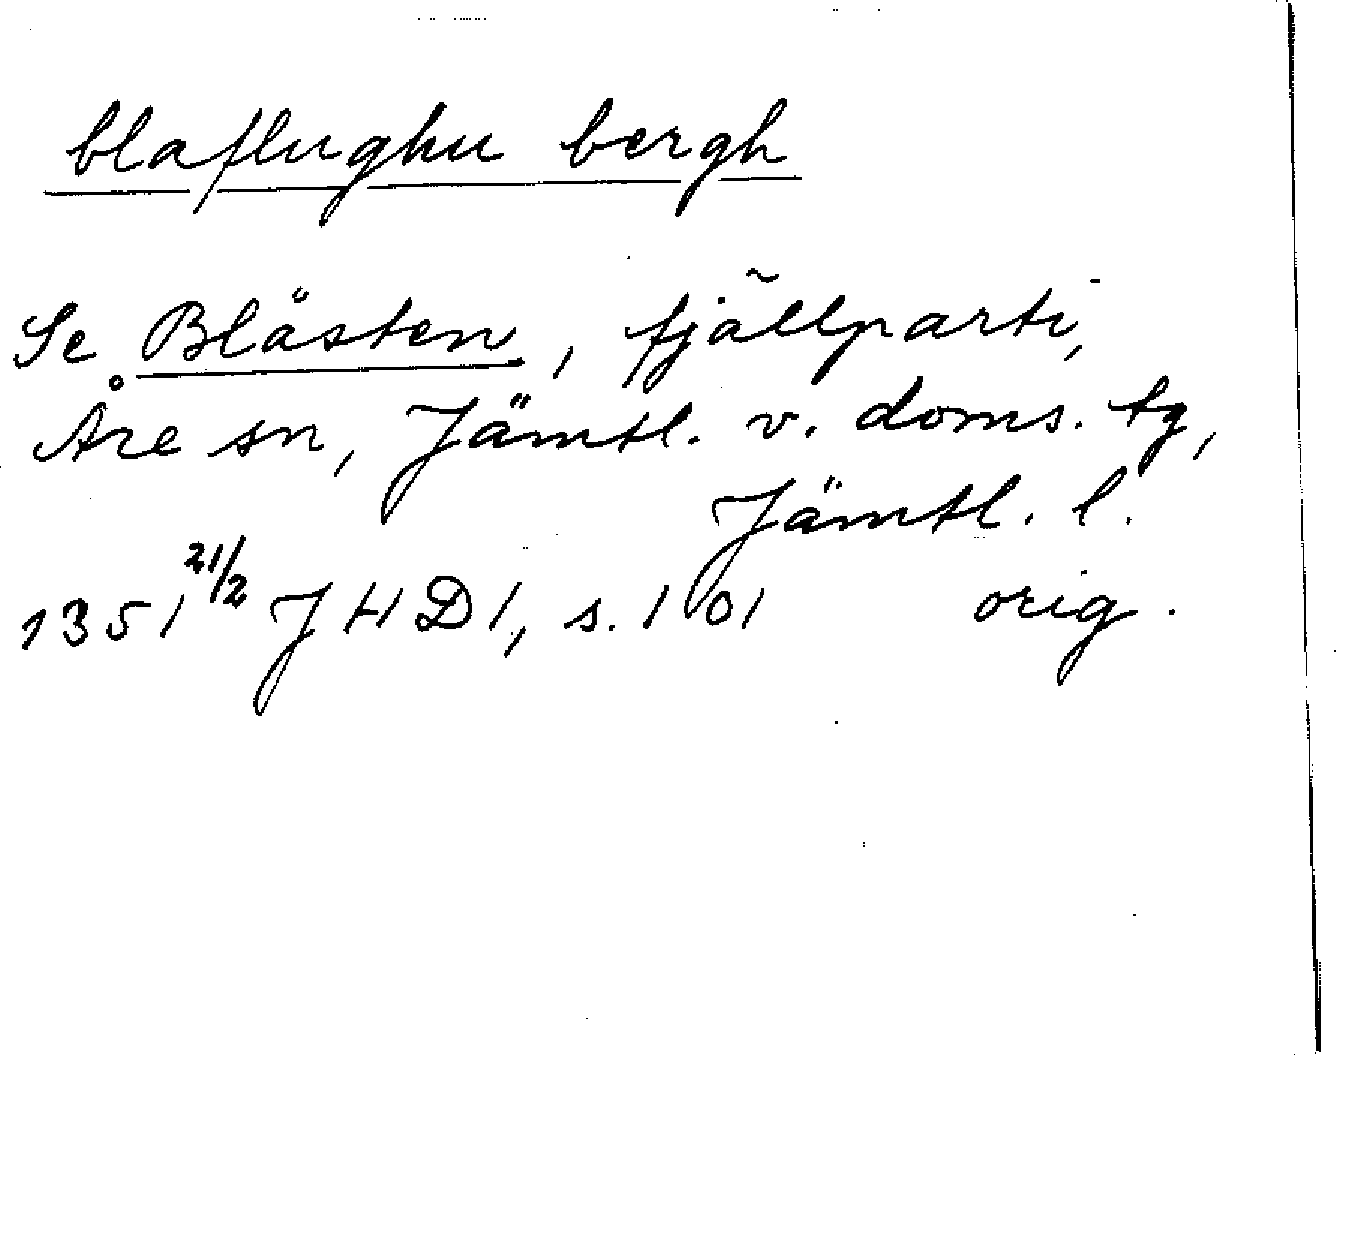 blaflughu bergh
Se Blåsten, fjällparti,
Åre sn, Jämtl. v. doms. tg,
Jämtl. l.
1351 21/2 JHD1, s. 101 orig.